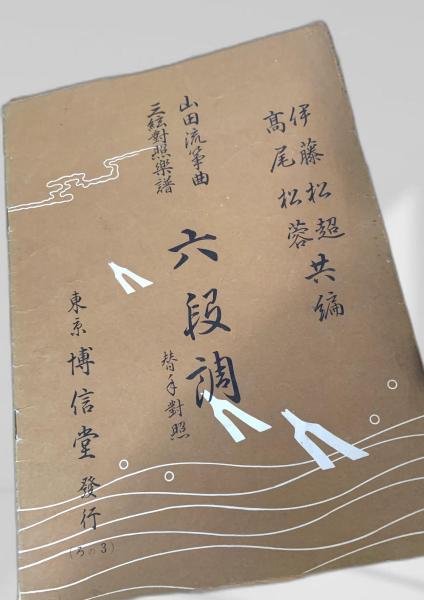 伊藤松超
高尾松蓉 共編
山田流箏曲
三絃對照樂譜
六段調
替手對照
東京 博信堂 發行
(ろの3)